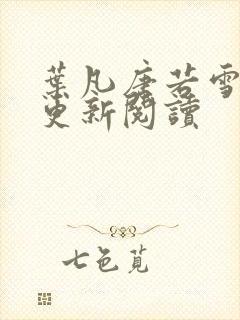 葉凡唐若雪
更新閱讀
七色覓